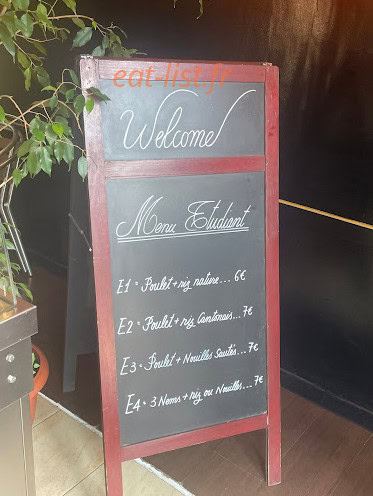 eat-list.fr
Welcome
Menu Etudiant
E1 = Poulet + riz nature... 6€
E2 = Poulet + riz Cantonais... 7€
E3 = Poulet + Nouilles Sautés... 7€
E4 = 3 Nems + riz ou Nouilles... 7€